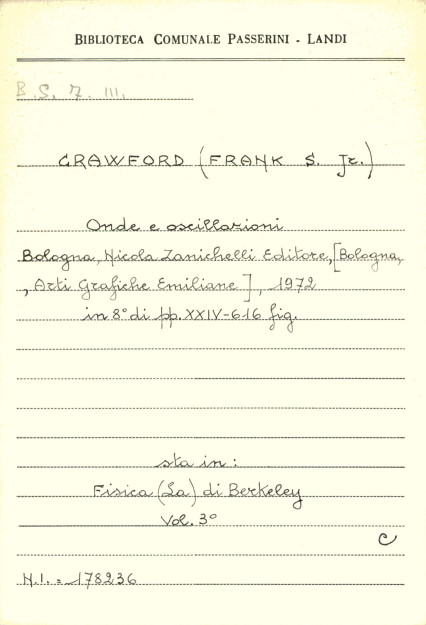 BIBLIOTECA COMUNALE PASSERINI - LANDI
B.S. 7. III.
CRAWFORD (FRANK S. Jr.)
Onde e oscillazioni
Bologna, Nicola Zanichelli Editore, [Bologna,
, Arti Grafiche Emiliane], 1972
in 8° di pp. XXIV-616 fig.
sta in:
Fisica (La) di Berkeley
Vol. 3°
C
N.I. = 178236